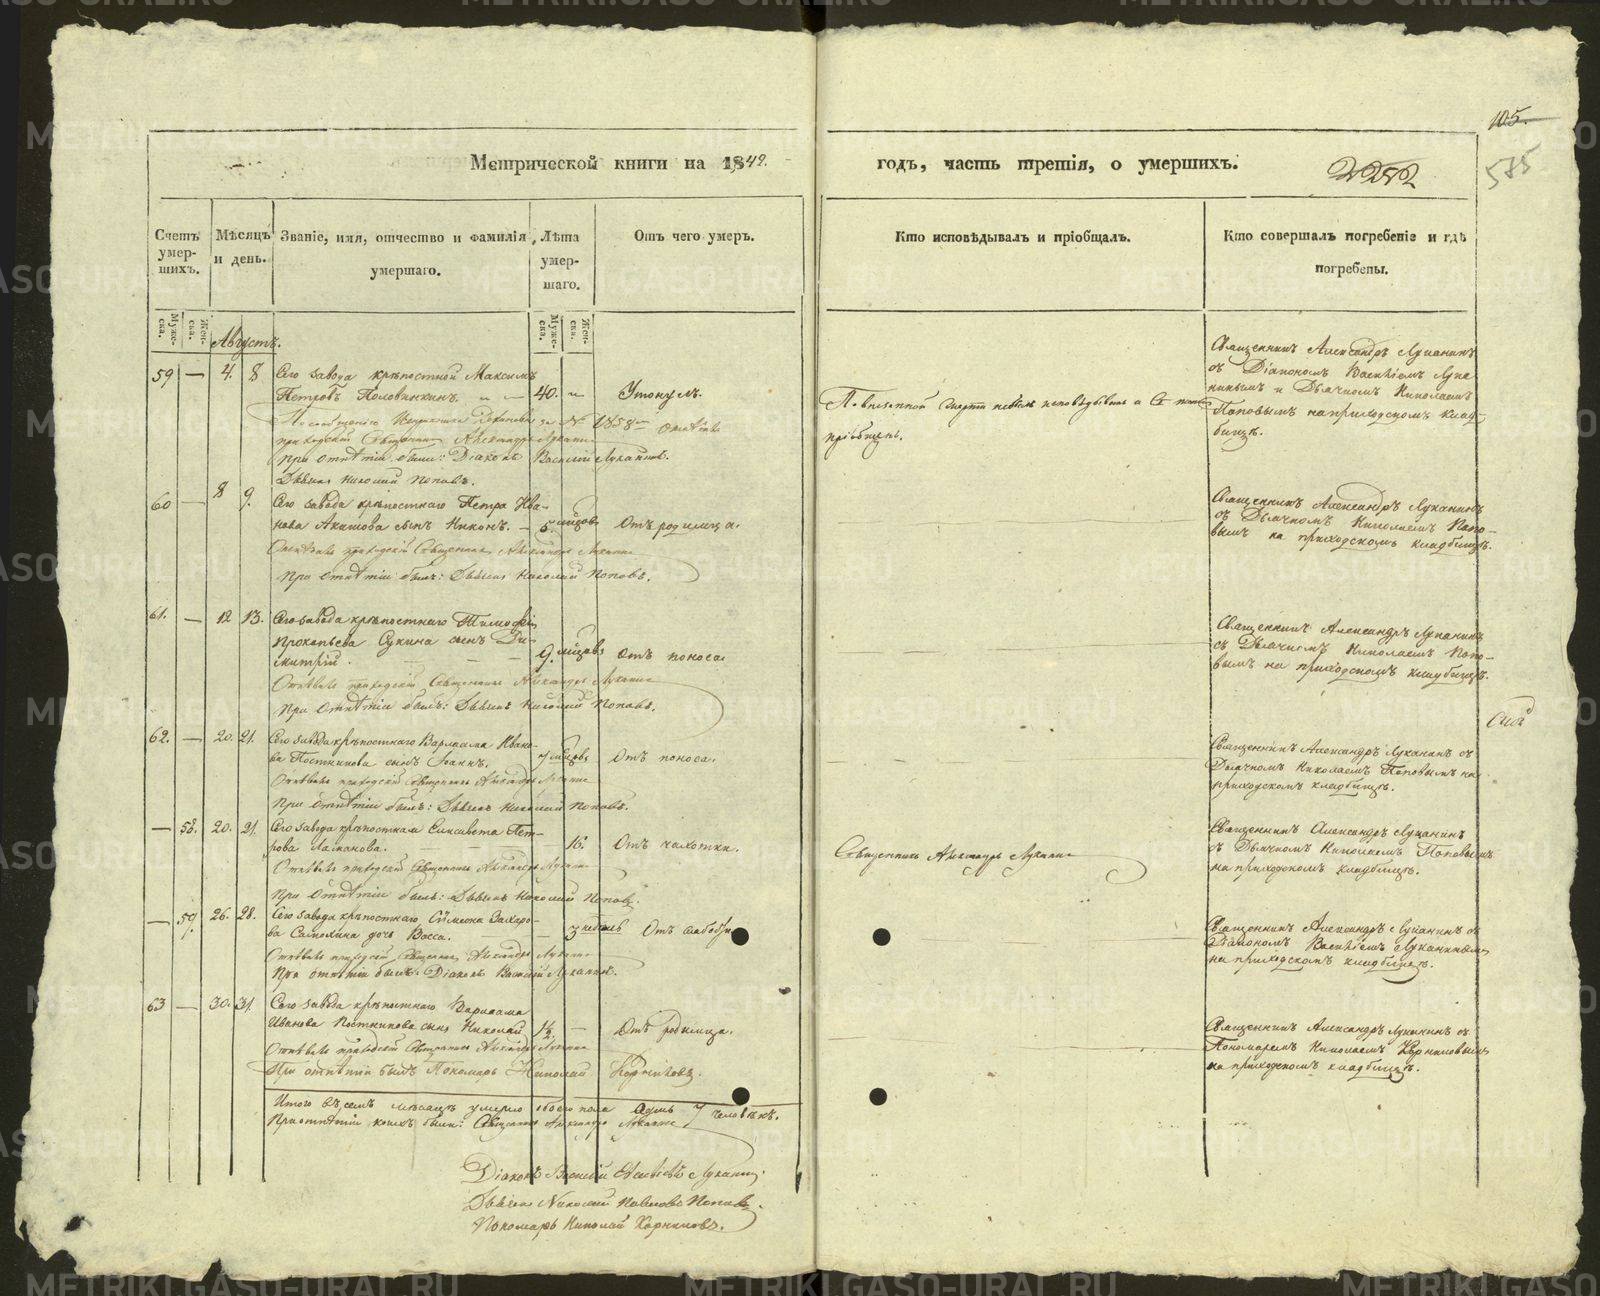 105.
575
Метрической книги на 1842.
годъ, часть третія, о умершихъ.
Счетъ умер-шихъ.
Мѣсяцъ и день.
Званіе, имя, отчество и фамилія умершаго.
Лѣта умер-шаго.
Отъ чего умеръ.
Кто исповѣдывалъ и пріобщалъ.
Кто совершалъ погребеніе и гдѣ погребены.
Муже-ска.
Жен-ска.
Муже-ска.
Жен-ска.
Августъ.
59 — 4. 8 Сего завода крѣпостной Максимъ
Петровъ Половинкинъ. 40. Утонулъ.
приходскій Священникъ Александръ Луканинъ
При отпѣтіи были: Діаконъ Василій Луканинъ.
Дьячекъ Николай Поповъ.
пріобщенъ.
Священникъ Александръ Луканинъ
съ Діакономъ Василіемъ Лука-
нинымъ и Дьячкомъ Николаемъ
Поповымъ на приходскомъ клад-
бищѣ.
60 — 8 9. Сего завода крѣпостнаго Петра Ива-
нова Акимова сынъ Никонъ. — 5. мѣсяцовъ Отъ родимца.
Отпѣвалъ приходскій Священникъ Александръ Луканинъ
При отпѣтіи былъ: Дьячекъ Николай Поповъ.
Священникъ Александръ Луканинъ
съ Дьячкомъ Николаемъ Попо-
вымъ на приходскомъ кладбищѣ.
61. — 12 13. Сего завода крѣпостнаго Тимофѣя
Прокопьева Сукина сынъ Ди-
митрій. 9. мѣсяцовъ Отъ поноса.
Отпѣвалъ приходскій Священникъ Александръ Луканинъ
При отпѣтіи былъ: Дьячекъ Николай Поповъ.
Священникъ Александръ Луканинъ
съ Дьячкомъ Николаемъ Попо-
вымъ на приходскомъ кладбищѣ.
62. — 20. 21. Сего завода крѣпостнаго Варлаама Ивано-
ва Постникова сынъ Іоаннъ. Отъ поноса.
Отпѣвалъ приходскій Священникъ Александръ Луканинъ
При отпѣтіи былъ: Дьячекъ Николай Поповъ.
Священникъ Александръ Луканинъ съ
Дьячкомъ Николаемъ Поповымъ на
приходскомъ кладбищѣ.
— 58. 20. 21. Сего завода крѣпостная Елисавета Пет-
рова 16. Отъ чахотки.
Отпѣвалъ приходскій Священникъ Александръ Луканинъ
При отпѣтіи былъ: Дьячекъ Николай Поповъ.
Священникъ Александръ Луканинъ
Священникъ Александръ Луканинъ
съ Дьячкомъ Николаемъ Поповымъ
на приходскомъ кладбищѣ.
— 59. 26. 28. Сего завода крѣпостнаго Симеона Захаро-
ва дочь Васса. 3 недѣль Отъ слабости
Отпѣвалъ приходскій Священникъ Александръ Луканинъ
При отпѣтіи былъ: Діаконъ Василій Луканинъ.
Священникъ Александръ Луканинъ съ
Діакономъ Василіемъ Луканинымъ
на приходскомъ кладбищѣ.
63 — 30. 31. Сего завода крѣпостнаго Варлаама
Иванова Постникова сынъ Николай 1½ — Отъ родимца.
Отпѣвалъ приходскій Священникъ Александръ Луканинъ
При отпѣтіи былъ Пономарь Николай Корниловъ.
Священникъ Александръ Луканинъ съ
Пономаремъ Николаемъ Корниловымъ
на приходскомъ кладбищѣ.
Итого въ семъ мѣсяцѣ умерло обоего пола 7 человѣкъ.
При отпѣтіи коихъ были: Священникъ Александръ Луканинъ
Діаконъ Василій Луканинъ.
Дьячекъ Николай Поповъ.
Пономарь Николай Корниловъ.
METRIKI.GASO-URAL.RU